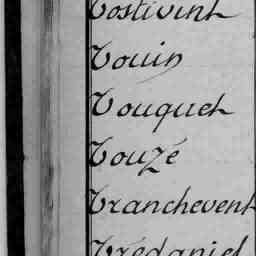 Tostivint
Touin
Touquet
Touzé
Tranchevent
Trédaniel